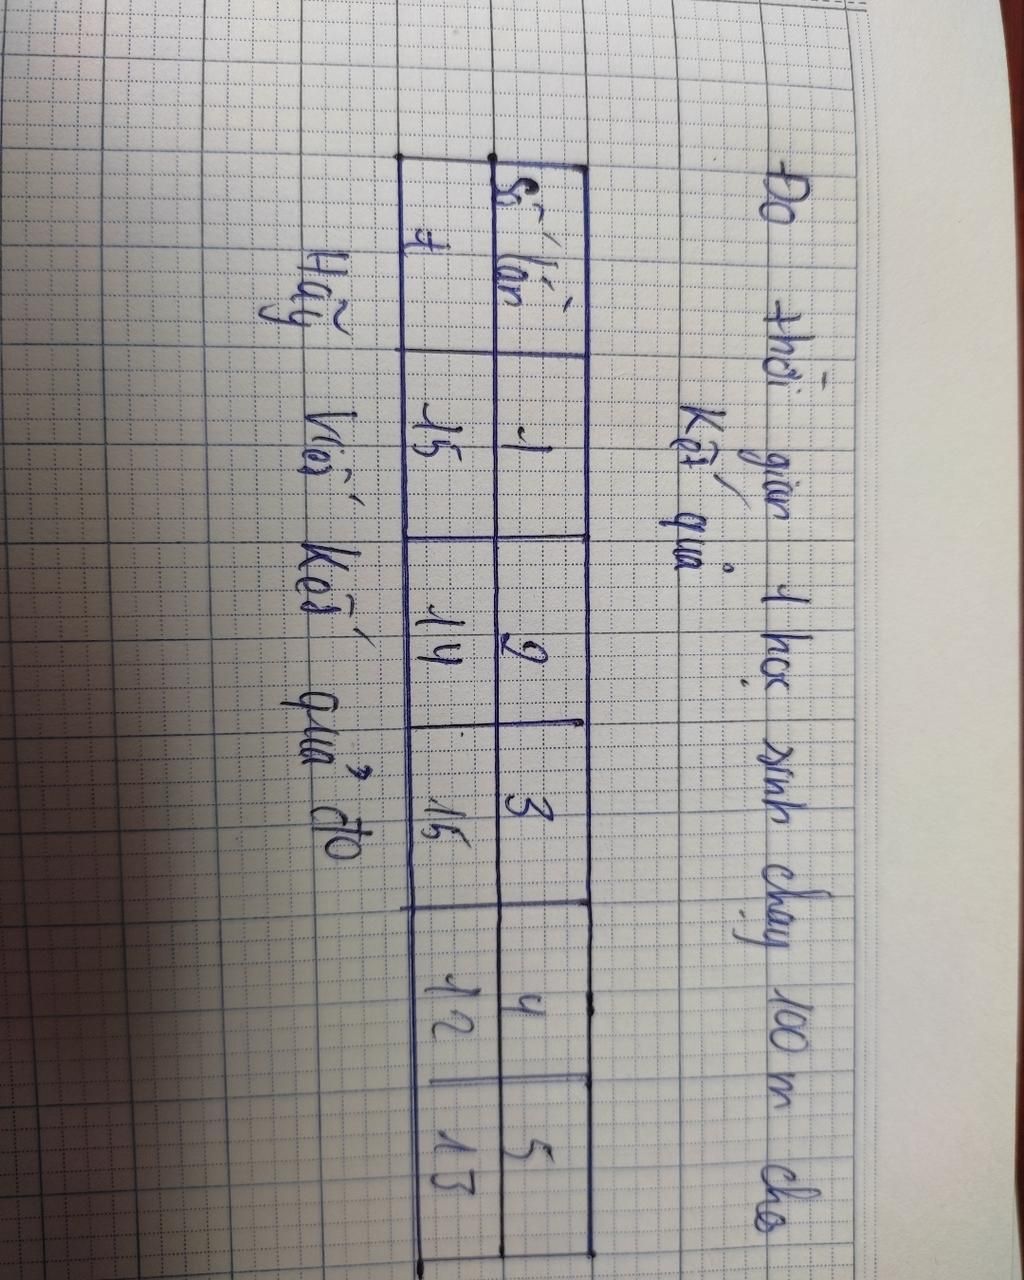 Đo thời gian 1 học sinh chạy 100 m cho
Kết quả
Số lần 1 2 3 4 5
t 15 14 15 12 13
Hãy viết kết quả đo